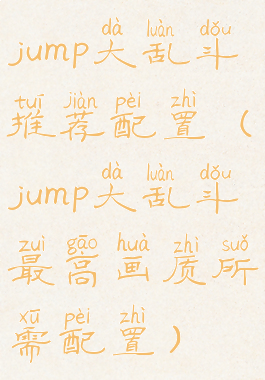 dà luàn dǒu
jump大乱斗
tuī jiàn pèi zhì
推荐配置（
dà luàn dǒu
jump大乱斗
zuì gāo huà zhì suǒ
最高画质所
xū pèi zhì
需配置）